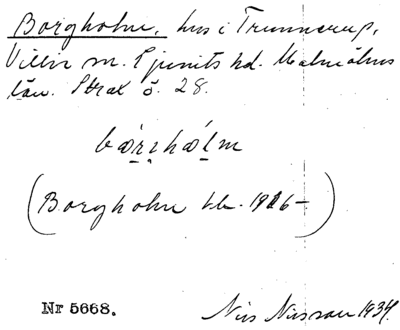 Borgholm, hus i Trunnerup,
Villie sn. Ljunits hd. Malmöhus
län. Strax ö. 28.
bɷrɪhɷlm
(Borgholm kb. 1916–)
Nr 5668.
Nils Nilsson 1934.